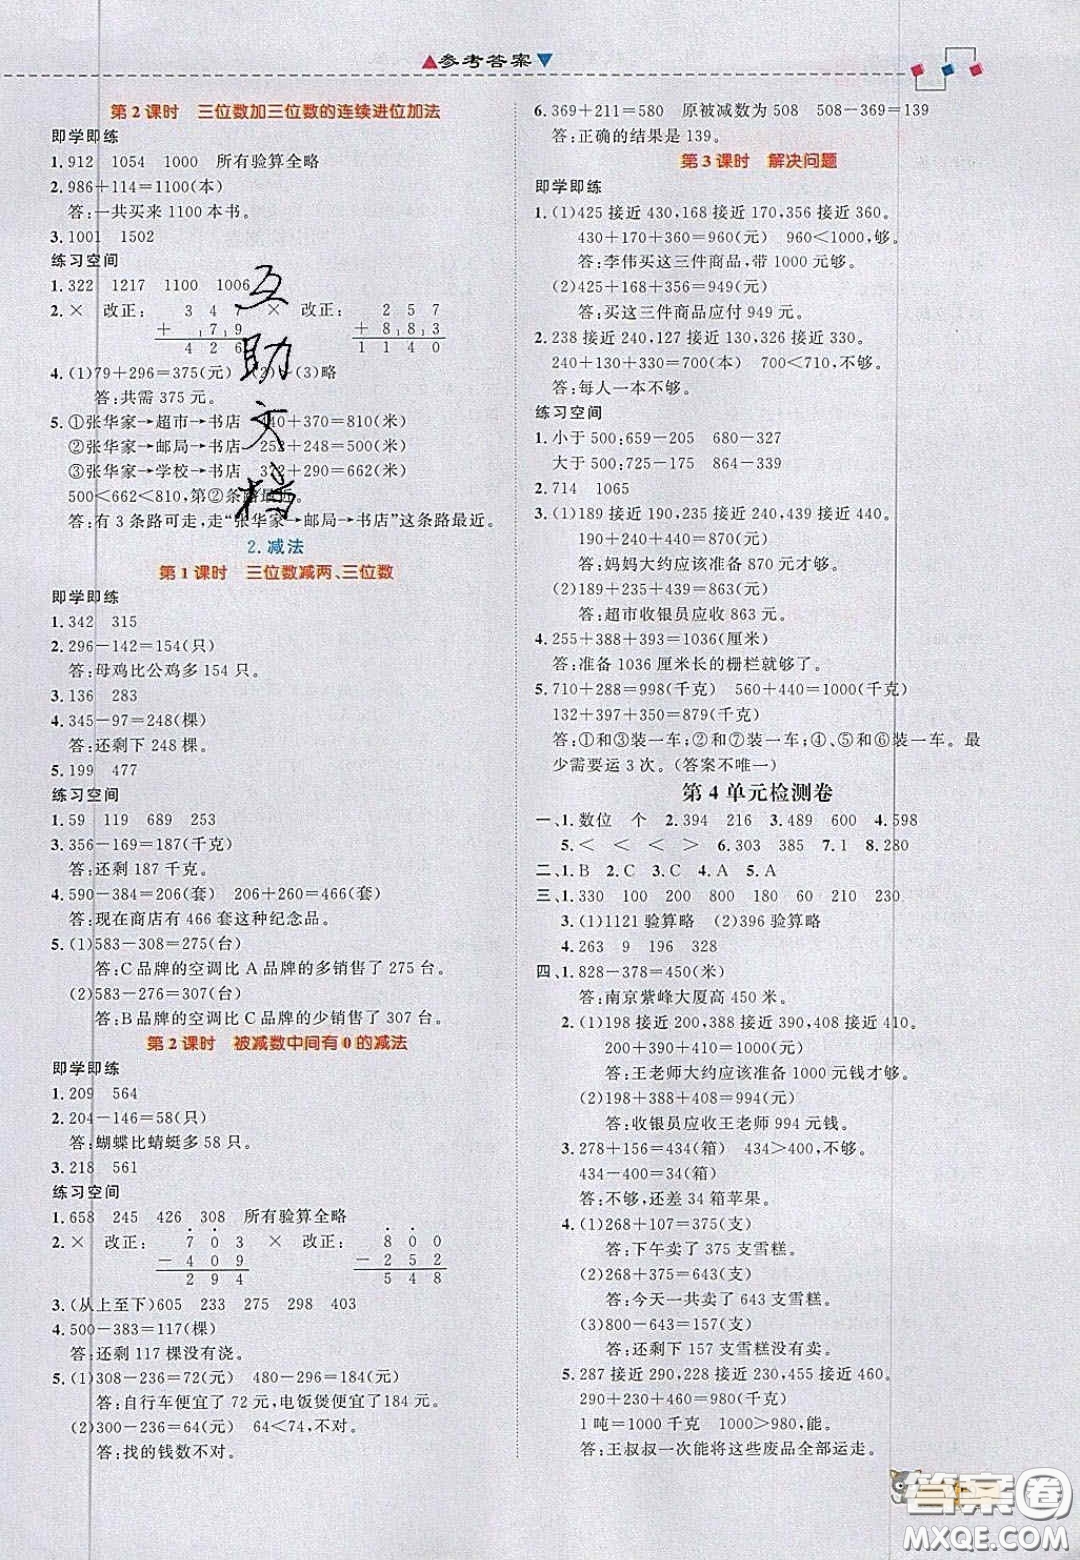 ▲参考答案▼
第2课时　三位数加三位数的连续进位加法
即学即练
1.912　1054　1000　所有验算全略
2.986+114=1100(本)
答:一共买来1100本书。
3.1001　1502
练习空间
1.322　1217　1100　1006
2.×　改正:　3 4 7　×　改正:　2 5 7
+ 7 9　+ 8 8 3
4 2 6　1 1 4 0
4.(1)79+296=375(元)　(2)　(3)略
答:共需375元。
5.①张华家→超市→书店　440+370=810(米)
②张华家→邮局→书店　252+248=500(米)
③张华家→学校→书店　372+290=662(米)
500<662<810,第②条路最近。
答:有3条路可走,走“张华家→邮局→书店”这条路最近。
2.减法
第1课时　三位数减两、三位数
即学即练
1.342　315
2.296-142=154(只)
答:母鸡比公鸡多154只。
3.136　283
4.345-97=248(棵)
答:还剩下248棵。
5.199　477
练习空间
1.59　119　689　253
3.356-169=187(千克)
答:还剩187千克。
4.590-384=206(套)　206+260=466(套)
答:现在商店有466套这种纪念品。
5.(1)583-308=275(台)
答:C品牌的空调比A品牌的多销售了275台。
(2)583-276=307(台)
答:B品牌的空调比C品牌的少销售了307台。
第2课时　被减数中间有0的减法
即学即练
1.209　564
2.204-146=58(只)
答:蝴蝶比蜻蜓多58只。
3.218　561
练习空间
1.658　245　426　308　所有验算全略
2.×　改正:　7 0 3　×　改正:　8 0 0
- 4 0 9　- 2 5 2
2 9 4　5 4 8
3.(从上至下)605　233　275　298　403
4.500-383=117(棵)
答:还剩117棵没有浇。
5.(1)308-236=72(元)　480-296=184(元)
答:自行车便宜了72元,电饭煲便宜了184元。
(2)300-236=64(元)　64<74,不对。
答:找的钱数不对。
6.369+211=580　原被减数为508　508-369=139
答:正确的结果是139。
第3课时　解决问题
即学即练
1.(1)425接近430,168接近170,356接近360。
430+170+360=960(元)　960<1000,够。
答:李伟买这三件商品,带1000元够。
(2)425+168+356=949(元)
答:买这三件商品应付949元。
2.238接近240,127接近130,326接近330。
240+130+330=700(本)　700<710,不够。
答:每人一本不够。
练习空间
1.小于500:659-205　680-327
大于500:725-175　864-339
2.714　1065
3.(1)189接近190,235接近240,439接近440。
190+240+440=870(元)
答:妈妈大约应该准备870元才够。
(2)189+235+439=863(元)
答:超市收银员应收863元。
4.255+388+393=1036(厘米)
答:准备1036厘米长的栅栏就够了。
5.710+288=998(千克)　560+440=1000(千克)
132+397+350=879(千克)
答:①和③装一车;②和⑦装一车;④、⑤和⑥装一车。最
少需要运3次。(答案不唯一)
第4单元检测卷
一、1.数位　个　2.394　216　3.489　600　4.598
5.<　<　<　>　6.303　385　7.1　8.280
二、1.B　2.C　3.C　4.A　5.A
三、1.330　100　200　800　180　60　50　230
3.(1)1121验算略　(2)396验算略
4.263　9　196　328
四、1.828-378=450(米)
答:南京紫峰大厦高450米。
2.(1)198接近200,388接近390,408接近410。
200+390+410=1000(元)
答:王老师大约应该准备1000元钱才够。
(2)198+388+408=994(元)
答:收银员应收王老师994元钱。
3.278+156=434(箱)　434>400,不够。
434-400=34(箱)
答:不够,还差34箱苹果。
4.(1)268+107=375(支)
答:下午卖了375支雪糕。
(2)268+375=643(支)
答:今天一共卖了643支雪糕。
(3)800-643=157(支)
答:还剩下157支雪糕没有卖出。
5.287接近290,228接近230,455接近460。
290+230+460=980(千克)
1吨=1000千克　1000>980,能。
答:王叔叔一次能将这些废品全部运走。
互助文档
答案圈
MXQE.COM